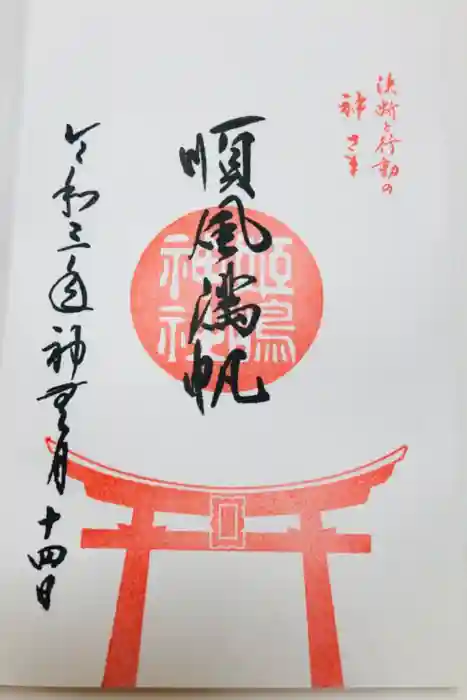 決断と行動の
神さま
順風満帆
令和三年神無月十四日